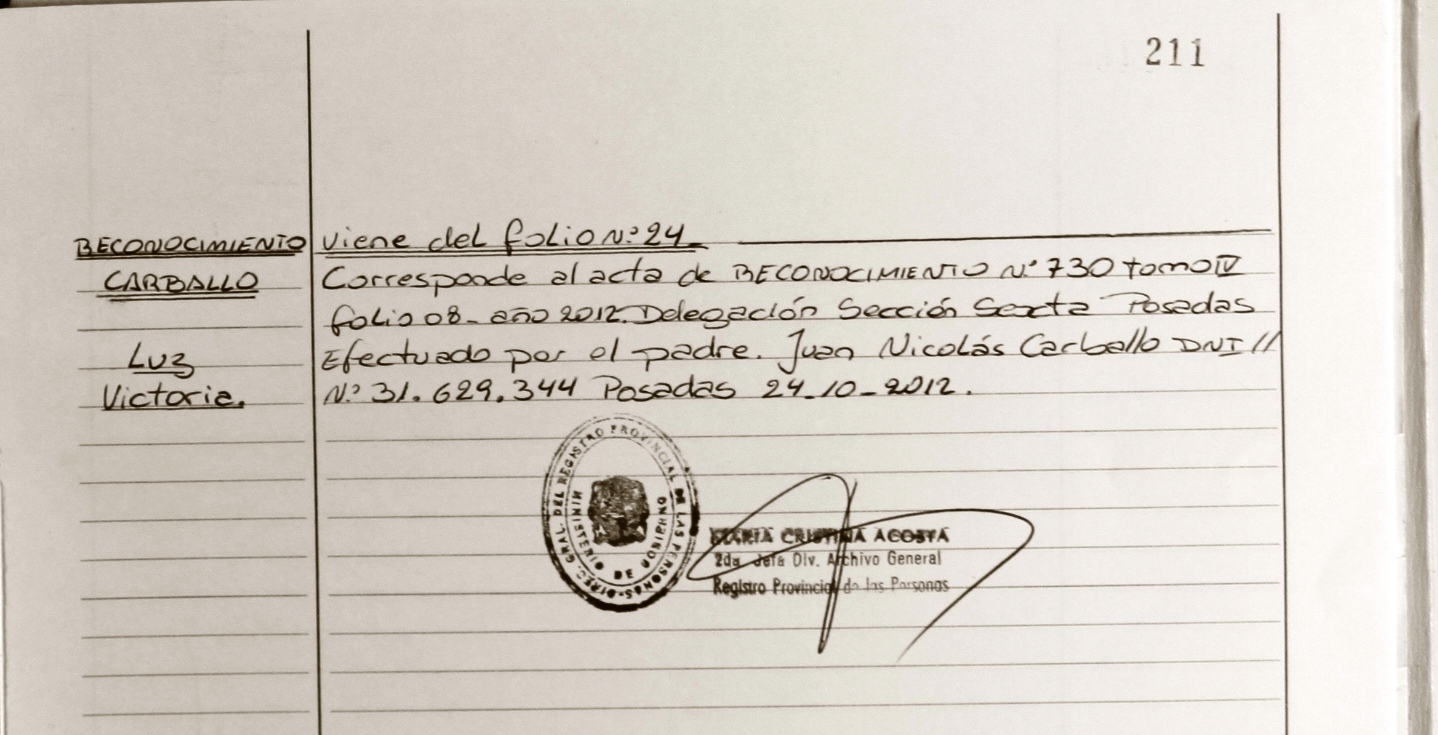 211
RECONOCIMIENTO
CARBALLO
Luz
Victoria.
Viene del folio N.º 24
Corresponde al acta de RECONOCIMIENTO N.º 730 tomo IV
folio 08 - año 2012. Delegación Sección Sexta Posadas
Efectuado por el padre. Juan Nicolás Carballo DNI //
N.º 31.629.344 Posadas 24-10-2012.
DIREC. GRAL. DEL REGISTRO PROVINCIAL DE LAS PERSONAS
MINISTERIO DE GOBIERNO
MARIA CRISTINA ACOSTA
2da Jefa Div. Archivo General
Registro Provincial de las Personas